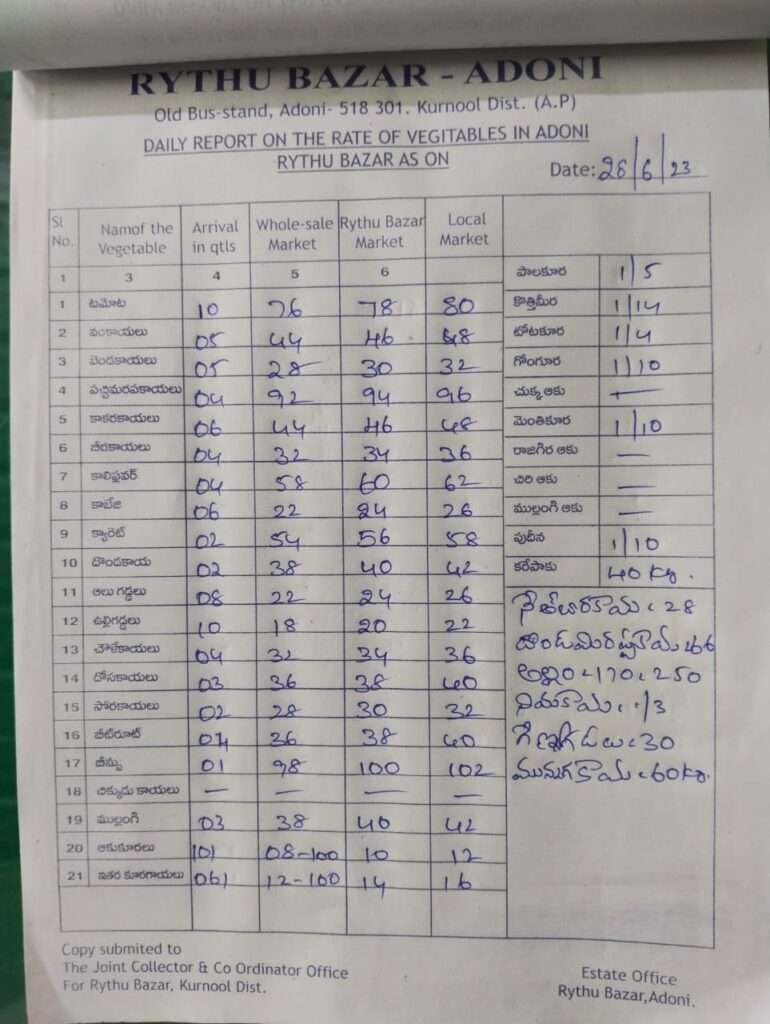 RYTHU BAZAR - ADONI
Old Bus-stand, Adoni- 518 301. Kurnool Dist. (A.P)
DAILY REPORT ON THE RATE OF VEGITABLES IN ADONI
RYTHU BAZAR AS ON
Date: 28/6/23
Sl No. Namof the Vegetable Arrival in qtls Whole-sale Market Rythu Bazar Market Local Market
1 3 4 5 6
1 టమోట 10 76 78 80
2 వంకాయలు 05 44 46 48
3 బెండకాయలు 05 28 30 32
4 పచ్చిమిరపకాయలు 04 92 94 96
5 కాకరకాయలు 06 44 46 48
6 బీరకాయలు 04 32 34 36
7 కాలిఫ్లవర్ 04 58 60 62
8 కాబేజి 06 22 24 26
9 క్యారెట్ 02 54 56 58
10 దొండకాయ 02 38 40 42
11 ఆలు గడ్డలు 08 22 24 26
12 ఉల్లిగడ్డలు 10 18 20 22
13 చౌళికాయలు 04 32 34 36
14 దోసకాయలు 03 36 38 40
15 సోరకాయలు 02 28 30 32
16 బీట్‌రూట్ 36 38 40
17 బీన్సు 01 98 100 102
18 చిక్కుడు కాయలు — — — —
19 ముల్లంగి 03 38 40 42
20 ఆకుకూరలు 101 08-100 10 12
21 ఇతర కూరగాయలు 061 12-100 14 16
పాలకూర 1/5
కొత్తిమీర 1/14
టోటకూర 1/4
గోంగూర 1/10
చుక్క ఆకు —
మెంతికూర 1/10
రాజగిర ఆకు —
చిరి ఆకు —
ముల్లంగి ఆకు —
పుదీన 1/10
కరేపాకు 40 Kg.
28
66
అల్లం 170 250
/3
30
మునుగకాయ 60 Kg.
Copy submited to
The Joint Collector & Co Ordinator Office
For Rythu Bazar, Kurnool Dist.
Estate Office
Rythu Bazar,Adoni.